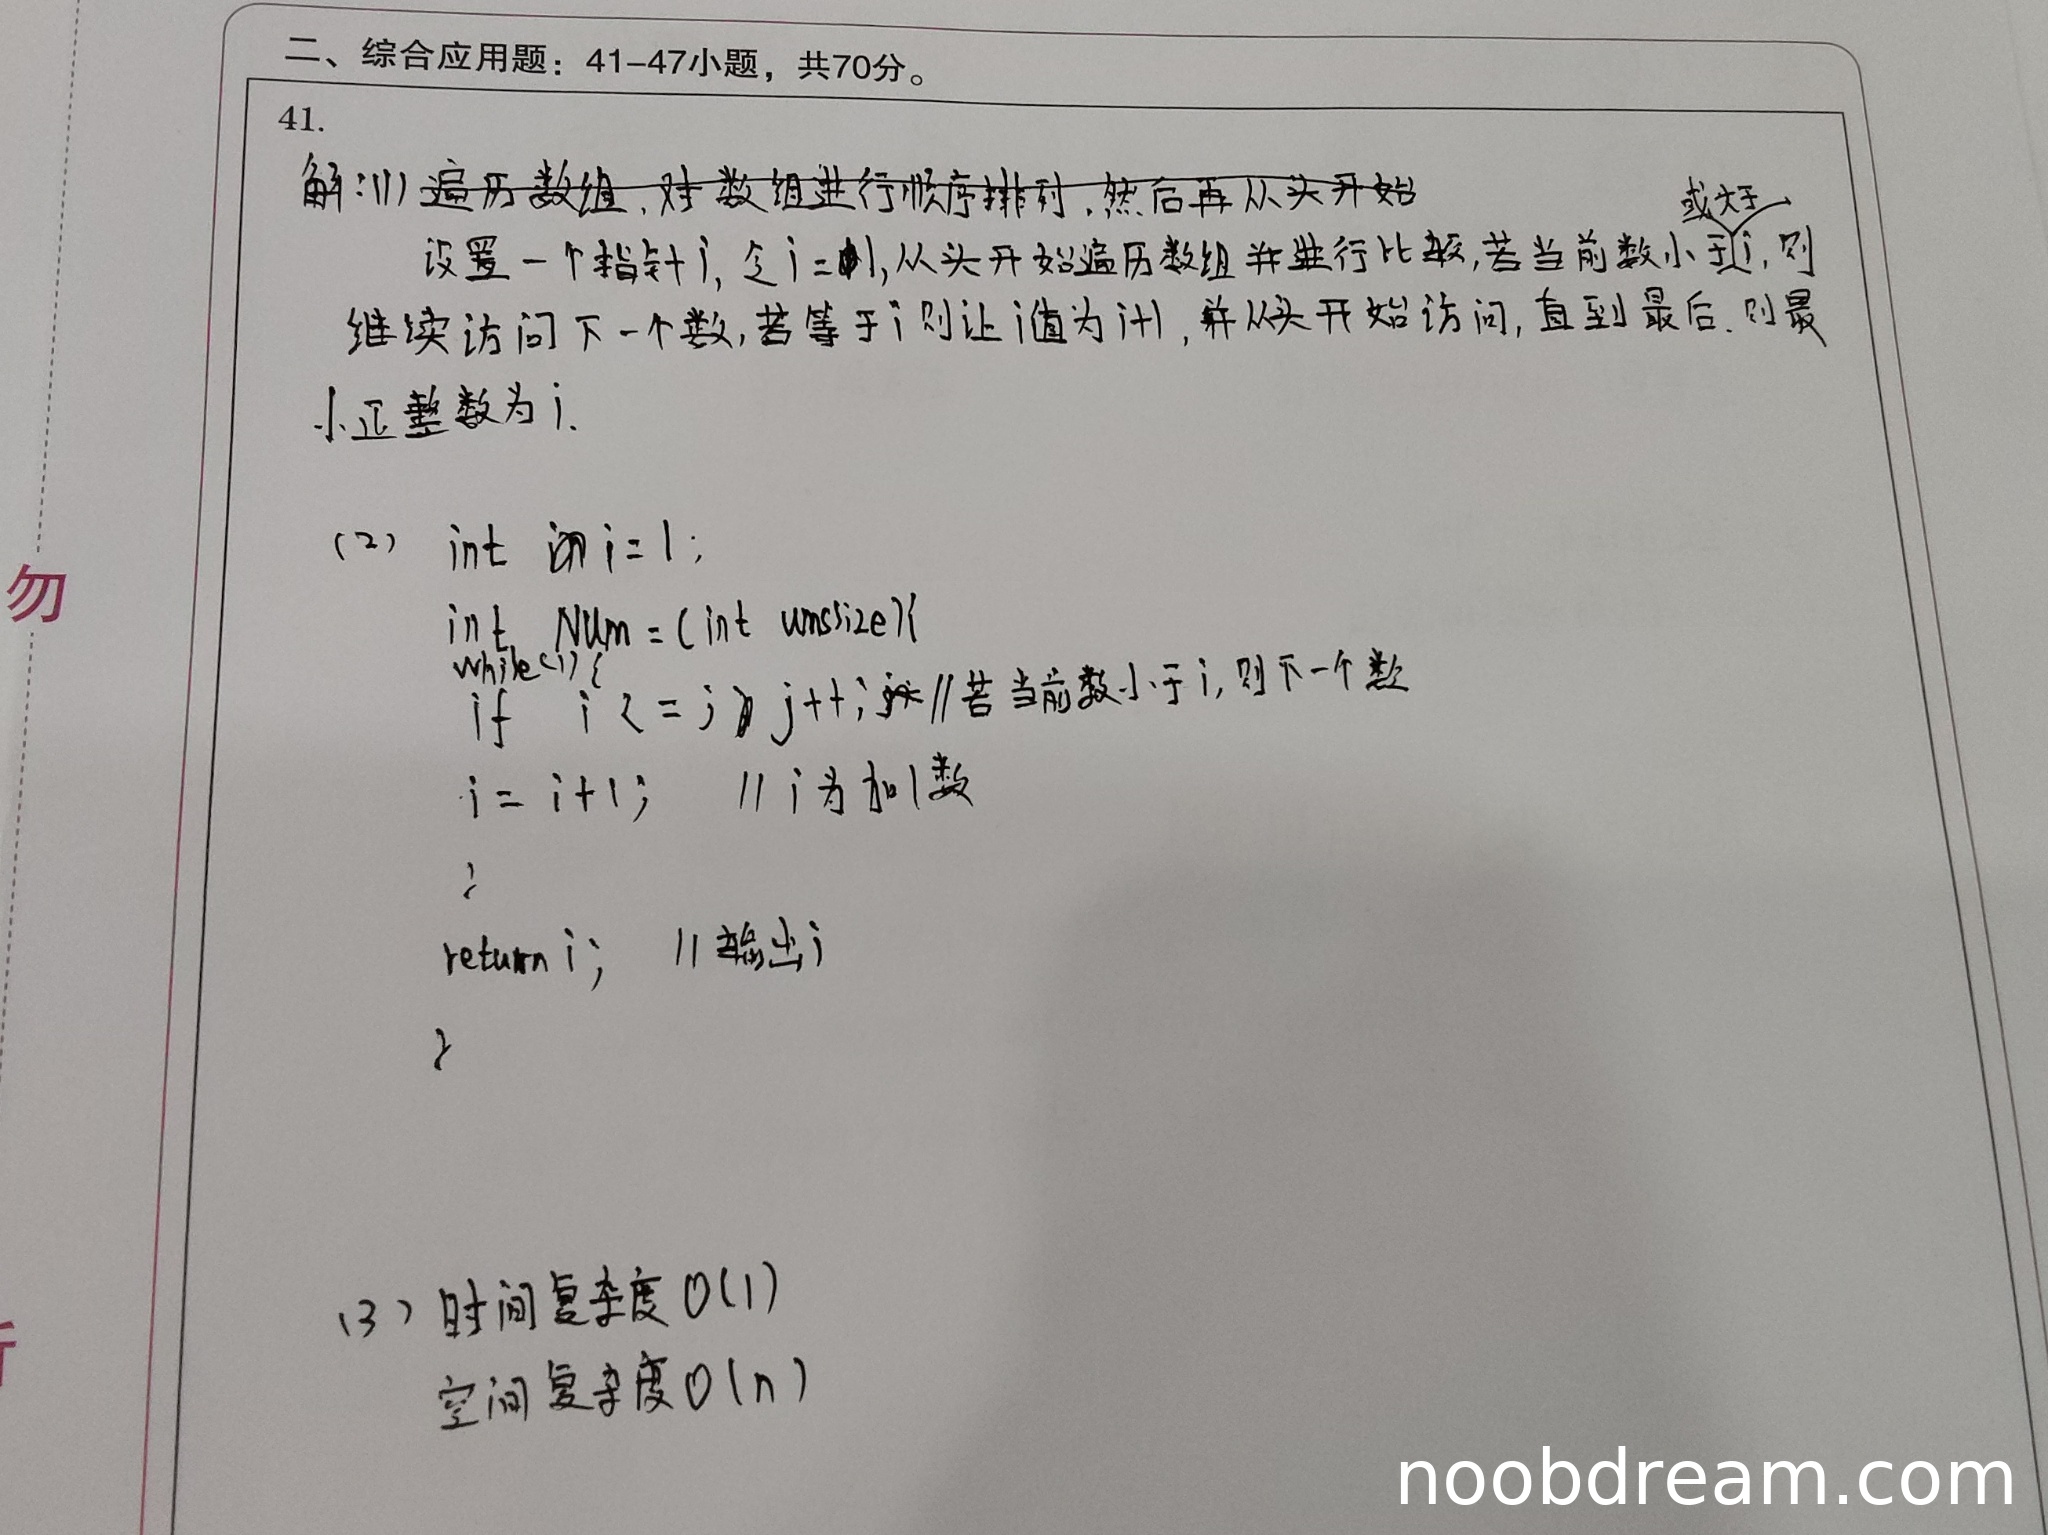 二、综合应用题：41-47小题，共70分。
41.
解:(1) 遍历数组,对数组进行顺序排列,然后再从头开始
或大于
设置一个指针i,令i=1,从头开始遍历数组并进行比较,若当前数小于i,则
继续访问下一个数,若等于i则让i值为i+1,并从头开始访问,直到最后.则最
小正整数为i.
(2) int i=1;
int NUm=(int umssize){
while(1){
if i<=j j++; //若当前数小于i,则下一个数
i=i+1; //i为加1数
}
return i; //输出i
}
(3) 时间复杂度O(1)
空间复杂度O(n)
勿
noobdream.com